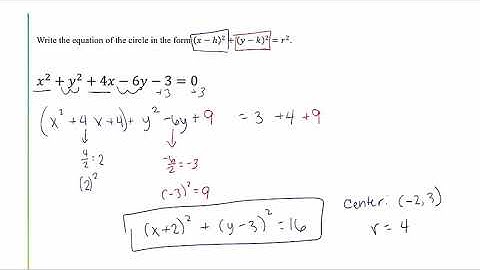 Write the equation of the circle in the form (x − h)² + (y − k)² = r².
x² + y² + 4x − 6y − 3 = 0
+3 +3
(x² + 4x + 4) + y² − 6y + 9 = 3 + 4 + 9
4/2 = 2
(2)²
−6/2 = −3
(−3)² = 9
(x+2)² + (y−3)² = 16
Center: (−2, 3)
r = 4